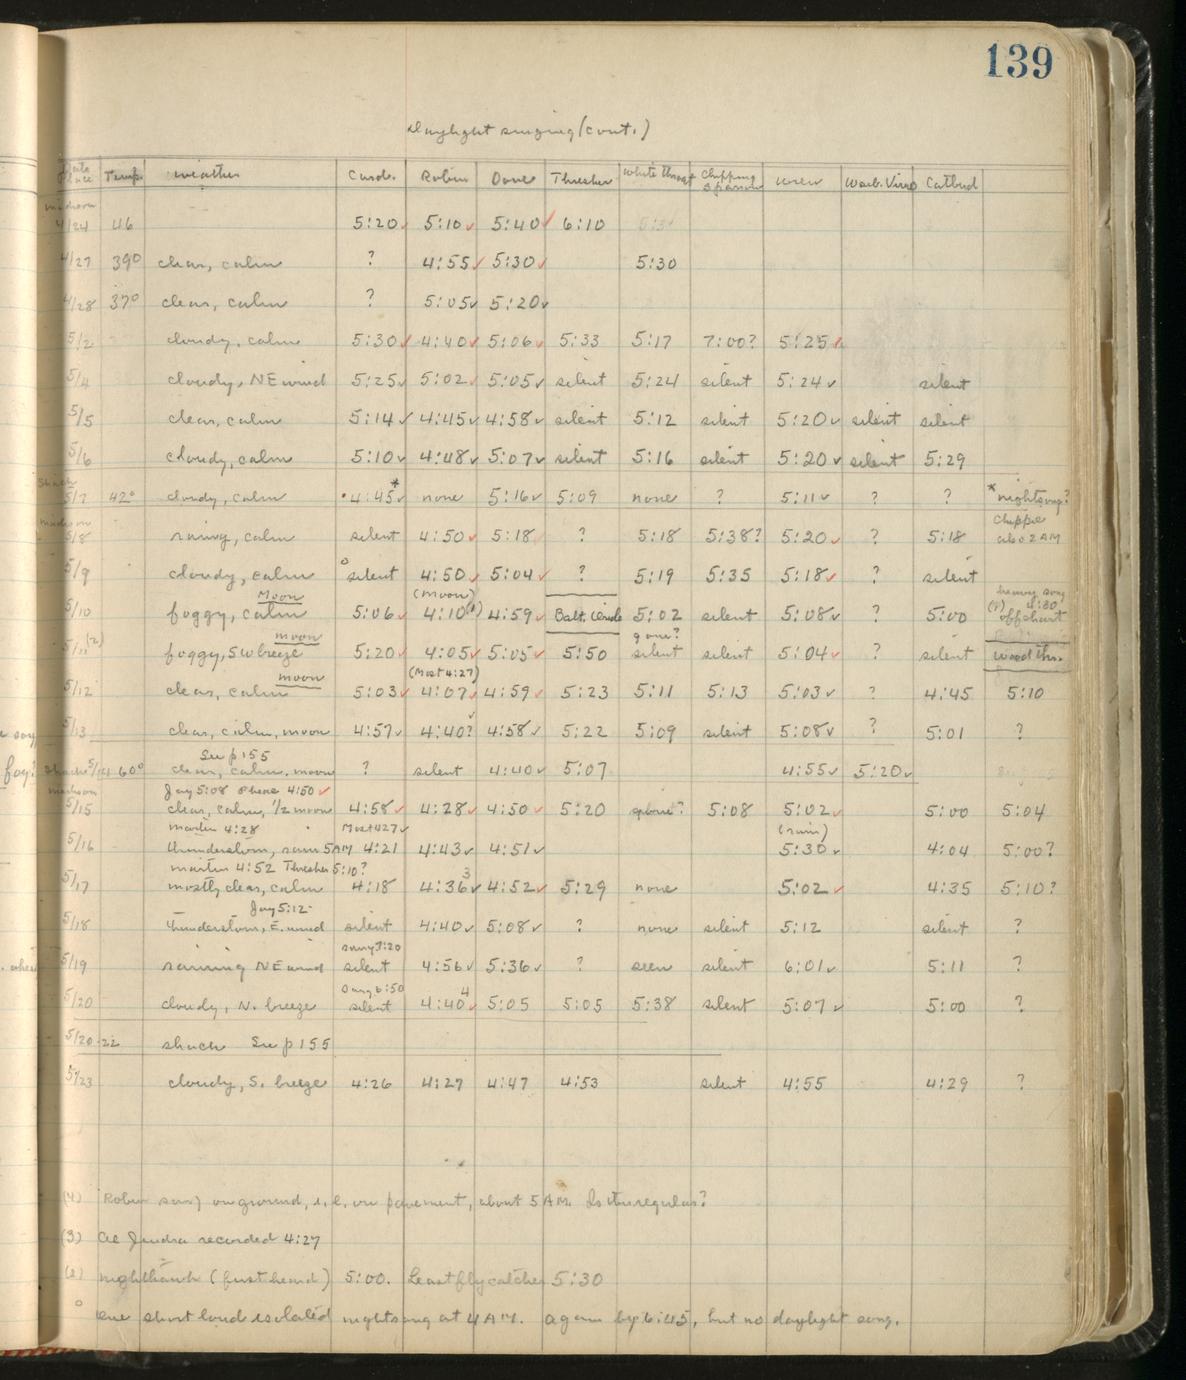 139
Daylight singing (cont.)
Date Place Temp. weather Card. Robin Dove Thresher White throat Chipping Sparrow Wren Warb. Vireo Catbird
madison
4/24 46 5:20 5:10 5:40 6:10
4/27 39° clear, calm ? 4:55 5:30 5:30
4/28 37° clear, calm ? 5:05 5:20
5/2 cloudy, calm 5:30 4:40 5:06 5:33 5:17 7:00? 5:25
5/4 cloudy, NE wind 5:25 5:02 5:05 silent 5:24 silent 5:24 silent
5/5 clear, calm 5:14 4:45 4:58 silent 5:12 silent 5:20 silent silent
5/6 cloudy, calm 5:10 4:48 5:07 silent 5:16 silent 5:20 silent 5:29
Shack
5/7 42° cloudy, calm 4:45* none 5:16 5:09 none ? 5:11 ? ? *nightsong?
madison Chippie
5/8 rainy, calm silent 4:50 5:18 ? 5:18 5:38? 5:20 ? 5:18 also 2 AM
5/9 cloudy, calm °silent 4:50 5:04 ? 5:19 5:35 5:18 ? silent
Moon (moon)
5/10 foggy, calm 5:06 4:10(1) 4:59 Balt. Oriole 5:02 silent 5:08 ? 5:00 (1) 4:30 off chart
moon gone?
5/11(2) foggy, SW breeze 5:20 4:05 5:05 5:50 silent silent 5:04 ? silent wood thr.
moon (Most 4:27)
5/12 clear, calm 5:03 4:07 4:59 5:23 5:11 5:13 5:03 ? 4:45 5:10
5/13 clear, calm, moon 4:57 4:40? 4:58 5:22 5:09 silent 5:08 ? 5:01 ?
See p 155
Shack 5/14 60° clear, calm, moon ? silent 4:40 5:07 4:55 5:20
madison Jay 5:08 Phebe 4:50
5/15 clear, calm, 1/2 moon 4:58 4:28 4:50 5:20 gone? 5:08 5:02 5:00 5:04
martin 4:28 Most 427 (rain)
5/16 thunderstorm, rain 5AM 4:21 4:43 4:51 5:30 4:04 5:00?
martin 4:52 Thresher 5:10?
5/17 mostly clear, calm 4:18 4:36 3 4:52 5:29 none 5:02 4:35 5:10?
Jay 5:12
5/18 thunderstorm, E. wind silent 4:40 5:08 ? none silent 5:12 silent ?
sang 7:20
5/19 raining NE wind silent 4:56 5:36 ? seen silent 6:01 5:11 ?
Sang 6:50
5/20 cloudy, N. breeze silent 4:40 4 5:05 5:05 5:38 silent 5:07 5:00 ?
5/20-22 shack See p 155
5/23 cloudy, S. breeze 4:26 4:27 4:47 4:53 silent 4:55 4:29 ?
(4) Robin sang on ground, i.e. on pavement, about 5 AM. Is this regular?
(3) recorded 4:27
(2) nighthawk (first heard) 5:00. Least flycatcher 5:30
° one short loud isolated nightsong at 4 AM. again by 6:45, but no daylight song.